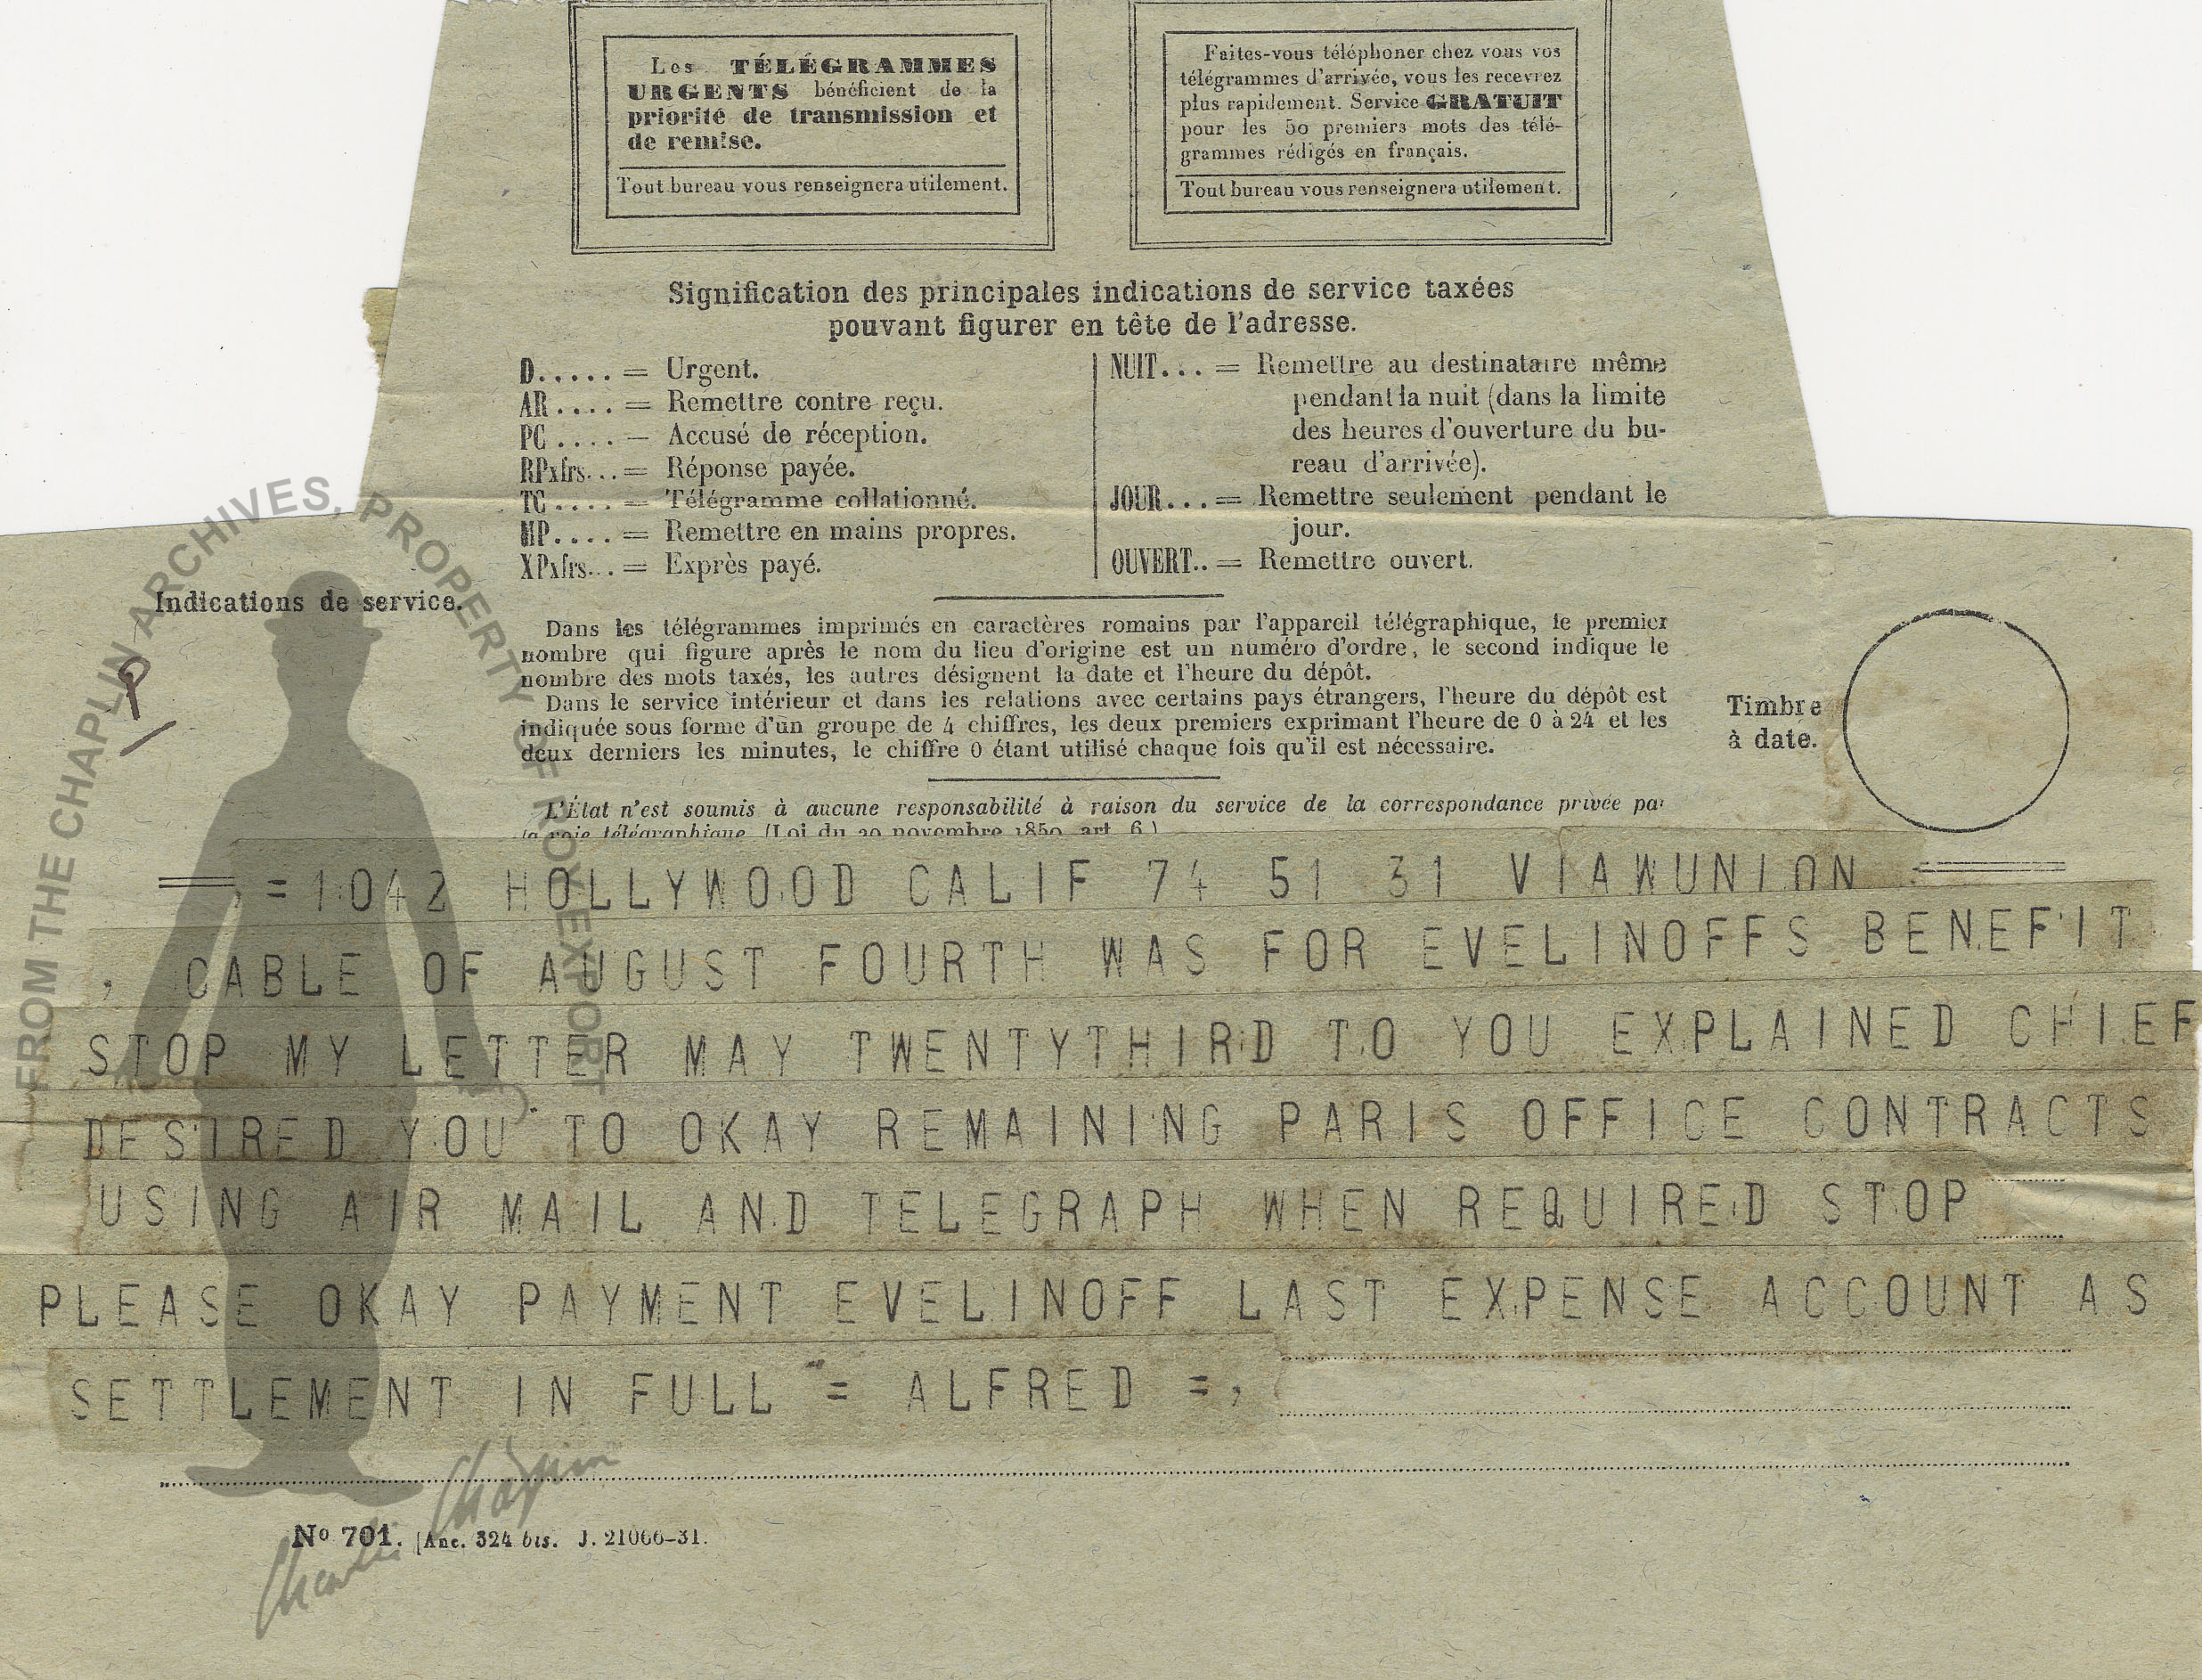 Les TÉLÉGRAMMES
URGENTS bénéficient de la
priorité de transmission et
de remise.
Tout bureau vous renseignera utilement.
Faites-vous téléphoner chez vous vos
télégrammes d'arrivée, vous les recevrez
plus rapidement. Service GRATUIT
pour les 50 premiers mots des télé-
grammes rédigés en français.
Tout bureau vous renseignera utilement.
Signification des principales indications de service taxées
pouvant figurer en tête de l'adresse.
D..... = Urgent.
AR.... = Remettre contre reçu.
PC.... = Accusé de réception.
RPxfrs... = Réponse payée.
TC.... = Télégramme collationné.
MP.... = Remettre en mains propres.
XPxfrs... = Exprès payé.
NUIT... = Remettre au destinataire même
pendant la nuit (dans la limite
des heures d'ouverture du bu-
reau d'arrivée).
JOUR... = Remettre seulement pendant le
jour.
OUVERT.. = Remettre ouvert.
Indications de service.
Dans les télégrammes imprimés en caractères romains par l'appareil télégraphique, le premier
nombre qui figure après le nom du lieu d'origine est un numéro d'ordre, le second indique le
nombre des mots taxés, les autres désignent la date et l'heure du dépôt.
Dans le service intérieur et dans les relations avec certains pays étrangers, l'heure du dépôt est
indiquée sous forme d'un groupe de 4 chiffres, les deux premiers exprimant l'heure de 0 à 24 et les
deux derniers les minutes, le chiffre 0 étant utilisé chaque fois qu'il est nécessaire.
Timbre
à date.
L'État n'est soumis à aucune responsabilité à raison du service de la correspondance privée par
la voie télégraphique. (Loi du 29 novembre 1850, art. 6.)
=1042 HOLLYWOOD CALIF 74 51 31 VIAWUNION
, CABLE OF AUGUST FOURTH WAS FOR EVELINOFFS BENEFIT
STOP MY LETTER MAY TWENTYTHIRD TO YOU EXPLAINED CHIEF
DESIRED YOU TO OKAY REMAINING PARIS OFFICE CONTRACTS
USING AIR MAIL AND TELEGRAPH WHEN REQUIRED STOP
PLEASE OKAY PAYMENT EVELINOFF LAST EXPENSE ACCOUNT AS
SETTLEMENT IN FULL = ALFRED =,
No 701. [Anc. 324 bis. J. 21066-31.
FROM THE CHAPLIN ARCHIVES, PROPERTY OF ROY EXPORT
Charlie Chaplin